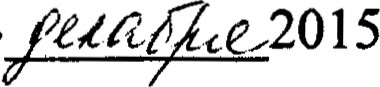 декабре 2015